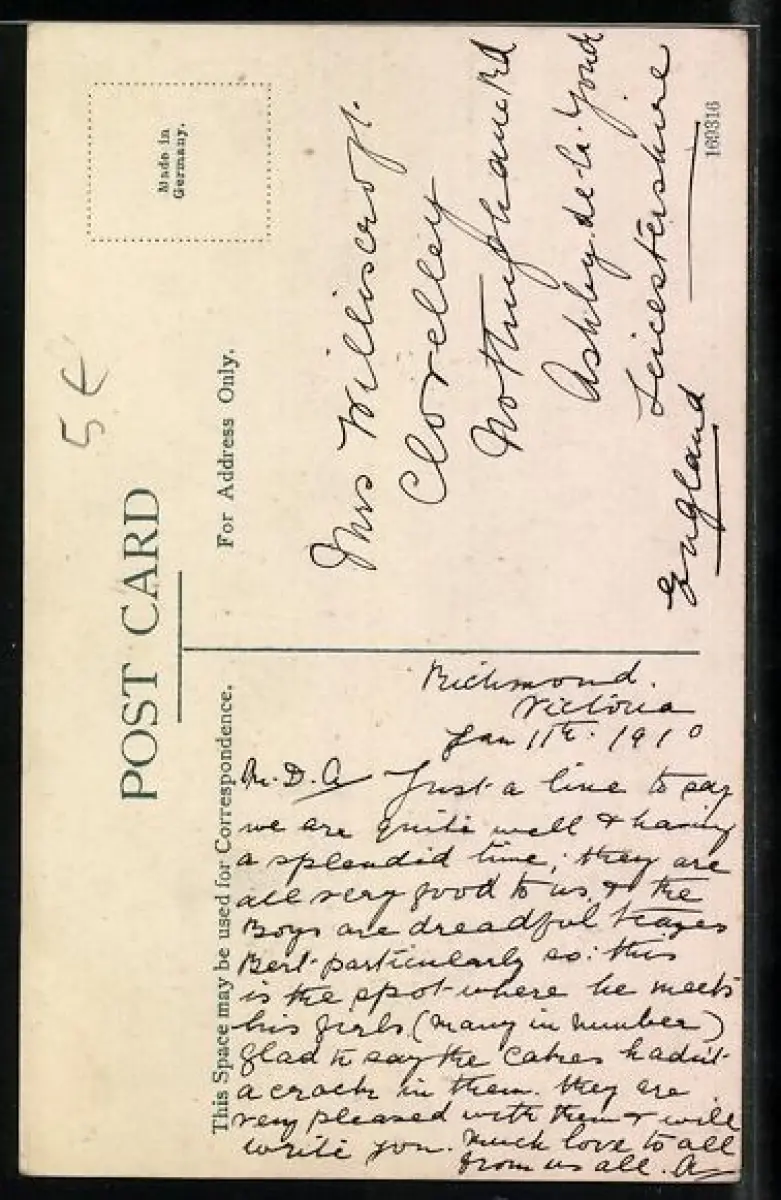 POST CARD
5€
Made in
Germany.
This Space may be used for Correspondence.
For Address Only.
Richmond.
Victoria
Jan 11th. 1910
M. D. A Just a line to say
we are quite well & having
a splendid time; they are
all very good to us, & the
Boys are dreadful teazes
Bert particularly so: this
is the spot where he meets
his girls (many in number)
glad to say the cakes hadn't
a crack in them. they are
very pleased with them & will
write you. Much love to all
from us all. A
Mrs Williscroft.
Clovelley
Nottingham Rd
Ashby. de-la. Zouch
Leicestershire
England
169316